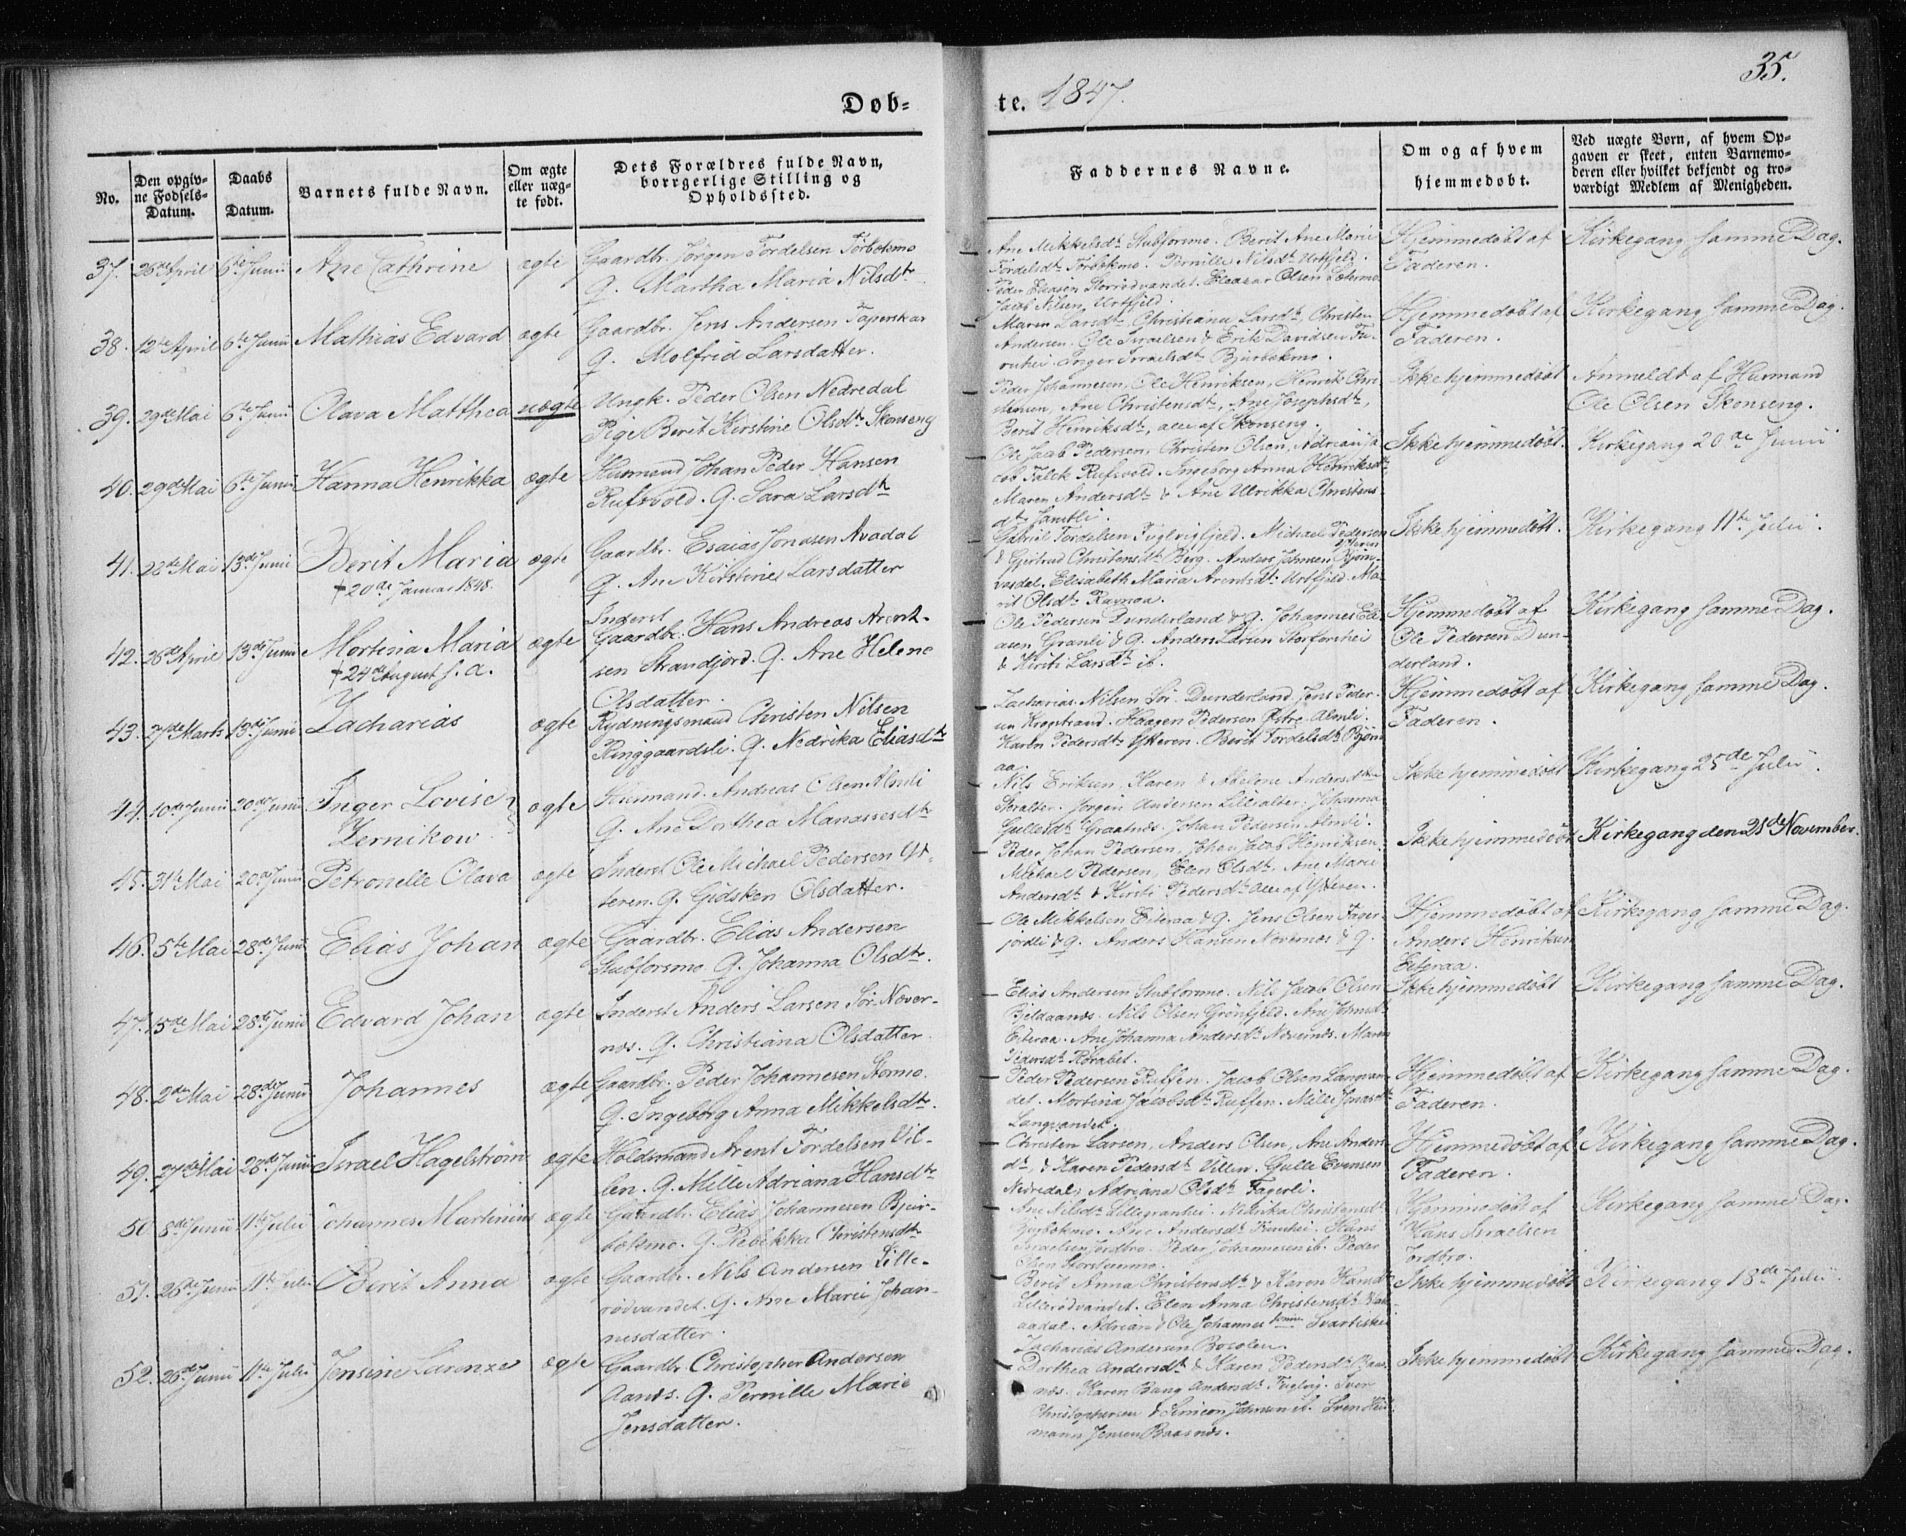 35.
Døb-
te. 1847.
No.
Den opgiv-
ne Fødsels-
Datum.
Daabs
Datum.
Barnets fulde Navn.
Om ægte
eller uæg-
te født.
Dets Forældres fulde Navn,
borrgerlige Stilling og
Opholdssted.
Faddernes Navne.
Om og af hvem
hjemmedøbt.
Ved uægte Børn, af hvem Op-
gaven er skeet, enten Barnemo-
deren eller hvilket bekjendt og tro-
værdigt Medlem af Menigheden.
37. 26de April 6te Junii Ane Cathrine ægte
Gaardbr. Jørgen Tordelsen Torbekmo
Q. Martha Maria Nilsdtr.
Ane Mikkelsdtr Stubforsmo. Berit Ane Marie
Tordelsdtr Torbekmo. Pernille Nilsdtr Urtfjeld.
Peder Eliasen Storrødvandet. Eleazar Olsen
Jacob Nilsen, Urtfjeld.
Hjemmedøbt af
Faderen.
Kirkegang samme Dag.
38. 12te April 6te Junii Mathias Edvard ægte
Gaardbr. Jens Andersen Taperskar
Q. Molfrid Larsdatter.
Maren Larsdtr. Christiana Larsdtr. Christen
Andersen. Ole Israelsen & Erik Davidsen
Inger Israelsdtr Bjurbekmo.
Hjemmedøbt af
Faderen.
Kirkegang samme Dag.
39. 29de Mai 6te Junii Olava Matthea uægte
Ungk. Peder Olsen Nedredal
Pige Berit Kirstine Olsdtr Skonseng
Peder Johannesen, Ole Henriksen, Henrik Chri-
stensen, Ane Christensdtr, Ane Josephsdtr,
Berit Henriksdtr, alle af Skonseng.
Ikke hjemmedøbt
Anmeldt af Husmand
Ole Olsen Skonseng.
40. 29de Mai 6te Junii Hanna Henrikka ægte
Husmand Johan Peder Hansen
Rufsvold. Q. Sara Larsdtr
Ole Jacob Pedersen, Christen Olsen, Adrian Ja-
cob Falck Rufsvold. Ingeborg Anna Henriksdtr
Maren Andersdtr & Ane Ulrikka Christens-
dtr Jamtli.
Ikke hjemmedøbt.
Kirkegang 20de Junii
41. 22de Mai 13de Junii Berit Maria ægte
† 20de Januar 1848.
Gaardbr. Esaias Jonasen Avadal
Q. Ane Kirstine Larsdatter
Gabriel Tordelsen Fuglvigfjeld. Michael Pedersen
Ytteren
& Gjertrud Christensdtr Berg. Anders Johnsen Bjørn-
vasdal. Elisabeth Maria Arentsdtr Urtfjeld. Ma-
rit Olsdtr Ravnaa.
Ikke hjemmedøbt.
Kirkegang 11te Julii.
42. 26de April 13de Junii Mortina Maria ægte
† 24de August s. a.
Inderst
Gaardbr. Hans Andreas Arent-
sen Strandjord. Q. Ane Helene
Olsdatter.
Ole Pedersen Dunderland & Q. Johannes Eli-
asen Granli & Q. Anders Larsen Storforshei
& Kirsti Larsdtr ib.
Hjemmedøbt af
Ole Pedersen Dun-
derland.
Kirkegang samme Dag.
43. 27de Marts 13de Junii Zacharias ægte
Rydningsmand Christen Nilsen
Ringgaardsli. Q. Nedrika Eliasdtr
Zacharias Nilsen Sør. Dunderland. Jens Peder-
sen Krogstrand. Haagen Pedersen Østre Almli.
Karen Pedersdtr Ytteren. Berit Tordelsdtr Bjørn-
aa.
Hjemmedøbt af
Faderen.
Kirkegang samme Dag.
44. 10de Junii 20de Junii Inger Lovise
Zernikow ægte
Husmand. Andreas Olsen Almli
Q. Ane Dorthea Manassesdtr
Nils Eriksen, Karen & Abelone Andersdtr
Storalter. Jørgen Andersen Lillealter. Johanna
Gullesdtr Graatnæs. Johan Pedersen Almli.
Ikke hjemmedøbt
Kirkegang 25de Julii.
45. 31te Mai 20de Junii Petronelle Olava ægte
Inderst Ole Michael Pedersen Yt-
teren. Q. Gidsken Olsdatter.
Peder Johan Pedersen, Johan Jacob Henriksen
Mikael Pedersen, Elen Olsdtr. Ane Marie
Andersdtr & Kirsti Pedersdtr alle af Ytteren.
Ikke hjemmedøbt
Kirkegang den 21de November.
46. 5te Mai 28de Junii Elias Johan ægte
Gaardbr. Elias Andersen
Stubforsmo Q. Johanna Olsdtr.
Ole Mikkelsen Eiteraa & Q. Jens Olsen Fager-
jordli & Q. Anders Hansen Nævernæs & Q.
Hjemmedøbt af
Anders Henriksen
Eiteraa.
Kirkegang samme Dag.
47. 15de Mai 28de Junii Edvard Johan ægte
Inderst Anders Larsen Sør. Næver-
næs. Q. Christiana Olsdatter.
Elias Andersen Stubforsmo. Nils Jacob Olsen
Bjeldaanæs. Nils Olsen Grønfjeld. Ane Johnsdtr
Eiteraa. Ane Johanna Andersdtr Nævernæs. Maren
Pedersdtr
Ikke hjemmedøbt
Kirkegang samme Dag.
48. 2de Mai 28de Junii Johannes ægte
Gaardbr. Peder Johannesen Stormo.
Q. Ingeborg Anna Mikkelsdtr.
Peder Pedersen Ruffen. Jacob Olsen Langvan-
det. Mortina Jacobsdtr Ruffen. Mille Jonasdtr
Langvandet.
Hjemmedøbt af
Faderen.
Kirkegang samme Dag.
49. 27de Mai 28de Junii Israel Hagelstrøm ægte
Holdsmand Arent Tordelsen Vil-
len. Q. Mille Adriana Hansdtr
Christen Larsen, Anders Olsen, Ane Anders-
dtr, & Karen Pedersdtr Villen. Gulle Evensen
Nedredal, Adriana Olsdtr Fagerli.
Hjemmedøbt af
Faderen.
Kirkegang samme Dag.
50. 8de Junii 11te Julii Johannes Martinius ægte
Gaardbr. Elias Johannesen Bjur-
bekmo. Q. Rebekka Christensdtr
Ane Nilsdtr Nedrika Christensdtr
Bjurbekmo. Ane Andersdtr Hans
Israelsen Jordbro. Peder Johannesen ib. Peder
Olsen
Hjemmedøbt af
Hans Israelsen
Jordbro.
Kirkegang samme Dag.
51. 26de Junii 11te Julii Berit Anna ægte
Gaardbr. Nils Andersen Lille-
rødvandet. Q. Ane Marie Johan-
nesdatter.
Berit Anna Christensdtr & Karen Hansdtr
Lillerødvandet. Elen Anna Christensdtr
Adrian & Ole Johannessønner Svartisdal
Zacharias Andersen
Ikke hjemmedøbt
Kirkegang 18de Julii.
52. 26de Junii 11te Julii Jensine Lorenze ægte
Gaardbr. Christopher Andersen
Aanæs. Q. Pernille Marie
Jensdatter.
Dorthea Andersdtr & Karen Pedersdtr Baas-
næs. Karen Bang Andersdtr Fuglvig. Iver
Christophersen & Simeon Johnsen ib. Sven Hei-
mann Jensen Baasnæs.
Ikke hjemmedøbt
Kirkegang samme Dag.